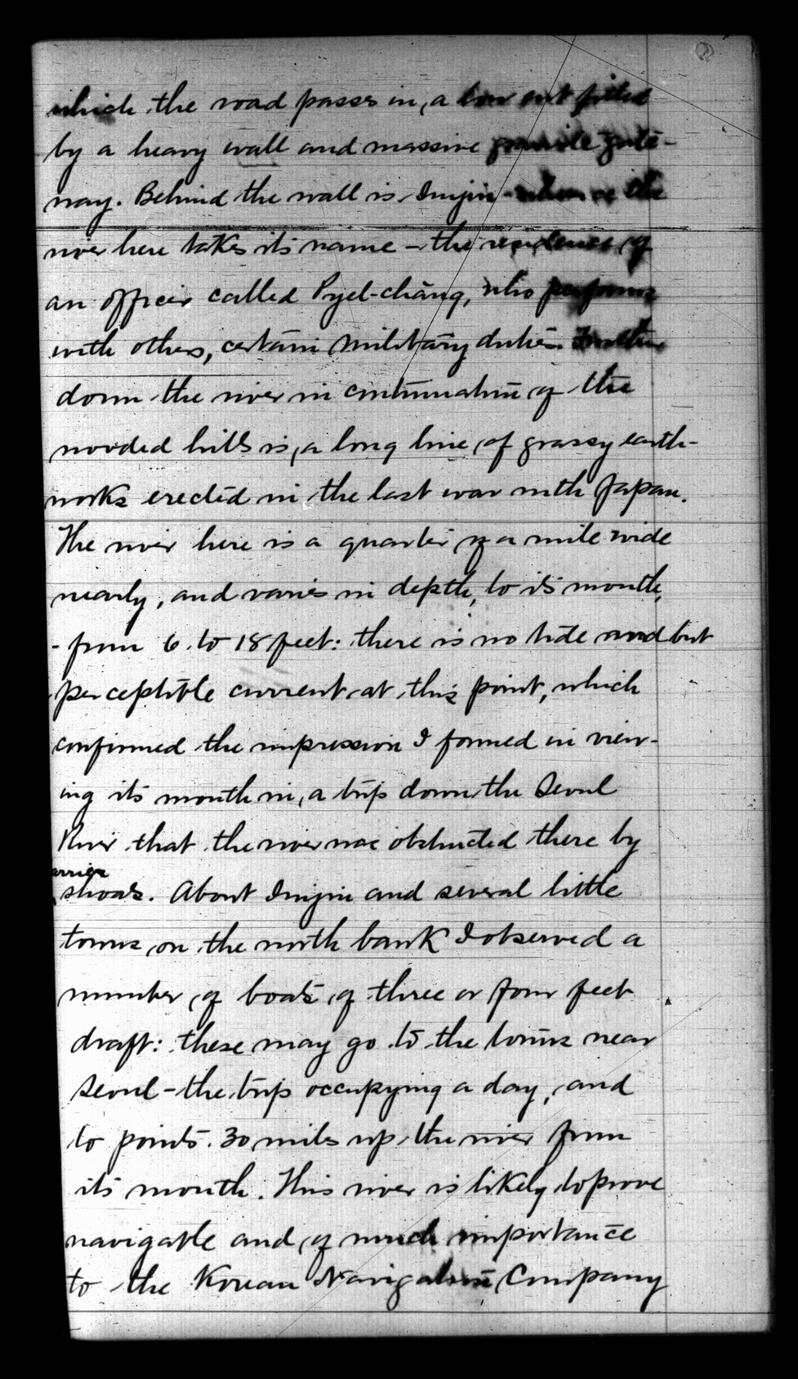 which the road passes in a low cut filled
by a heavy wall and massive granite gate-
way. Behind the wall is Imjin - whence the
river here takes its name - the residence of
an officer called Pyel-chang, who performs
with others, certain military duties. Further
down the river in continuation of the
wooded hills is a long line of grassy earth-
works erected in the last war with Japan.
The river here is a quarter of a mile wide
nearly, and varies in depth, to its mouth,
- from 6 to 18 feet: there is no tide and but
perceptible current at this point, which
confirmed the impression I formed in view-
ing its mouth in a trip down the Seoul
River that the river was obstructed there by
shoals. About Imjin and several little
towns on the north bank I observed a
number of boats of three or four feet
draft: these may go to the towns near
Seoul - the trip occupying a day, and
to points 30 miles up the river from
its mouth. This river is likely to prove
navigable and of much importance
to the Korean Navigation Company